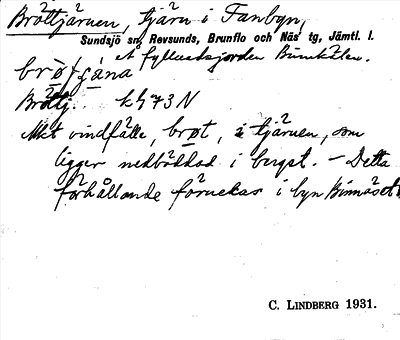 Bröttjärnen, tjärn i Fanbyn,
Sundsjö sn, Revsunds, Brunflo och Näs tg, Jämtl. l.
å fyllnadsjorden
Bröttj. k 473 N
Mkt vindfälle, brøt, i tjärnen, som
ligger nedbäddad i bergst. – Detta
förhållande förnekas i byn Binnäset
C. LINDBERG 1931.